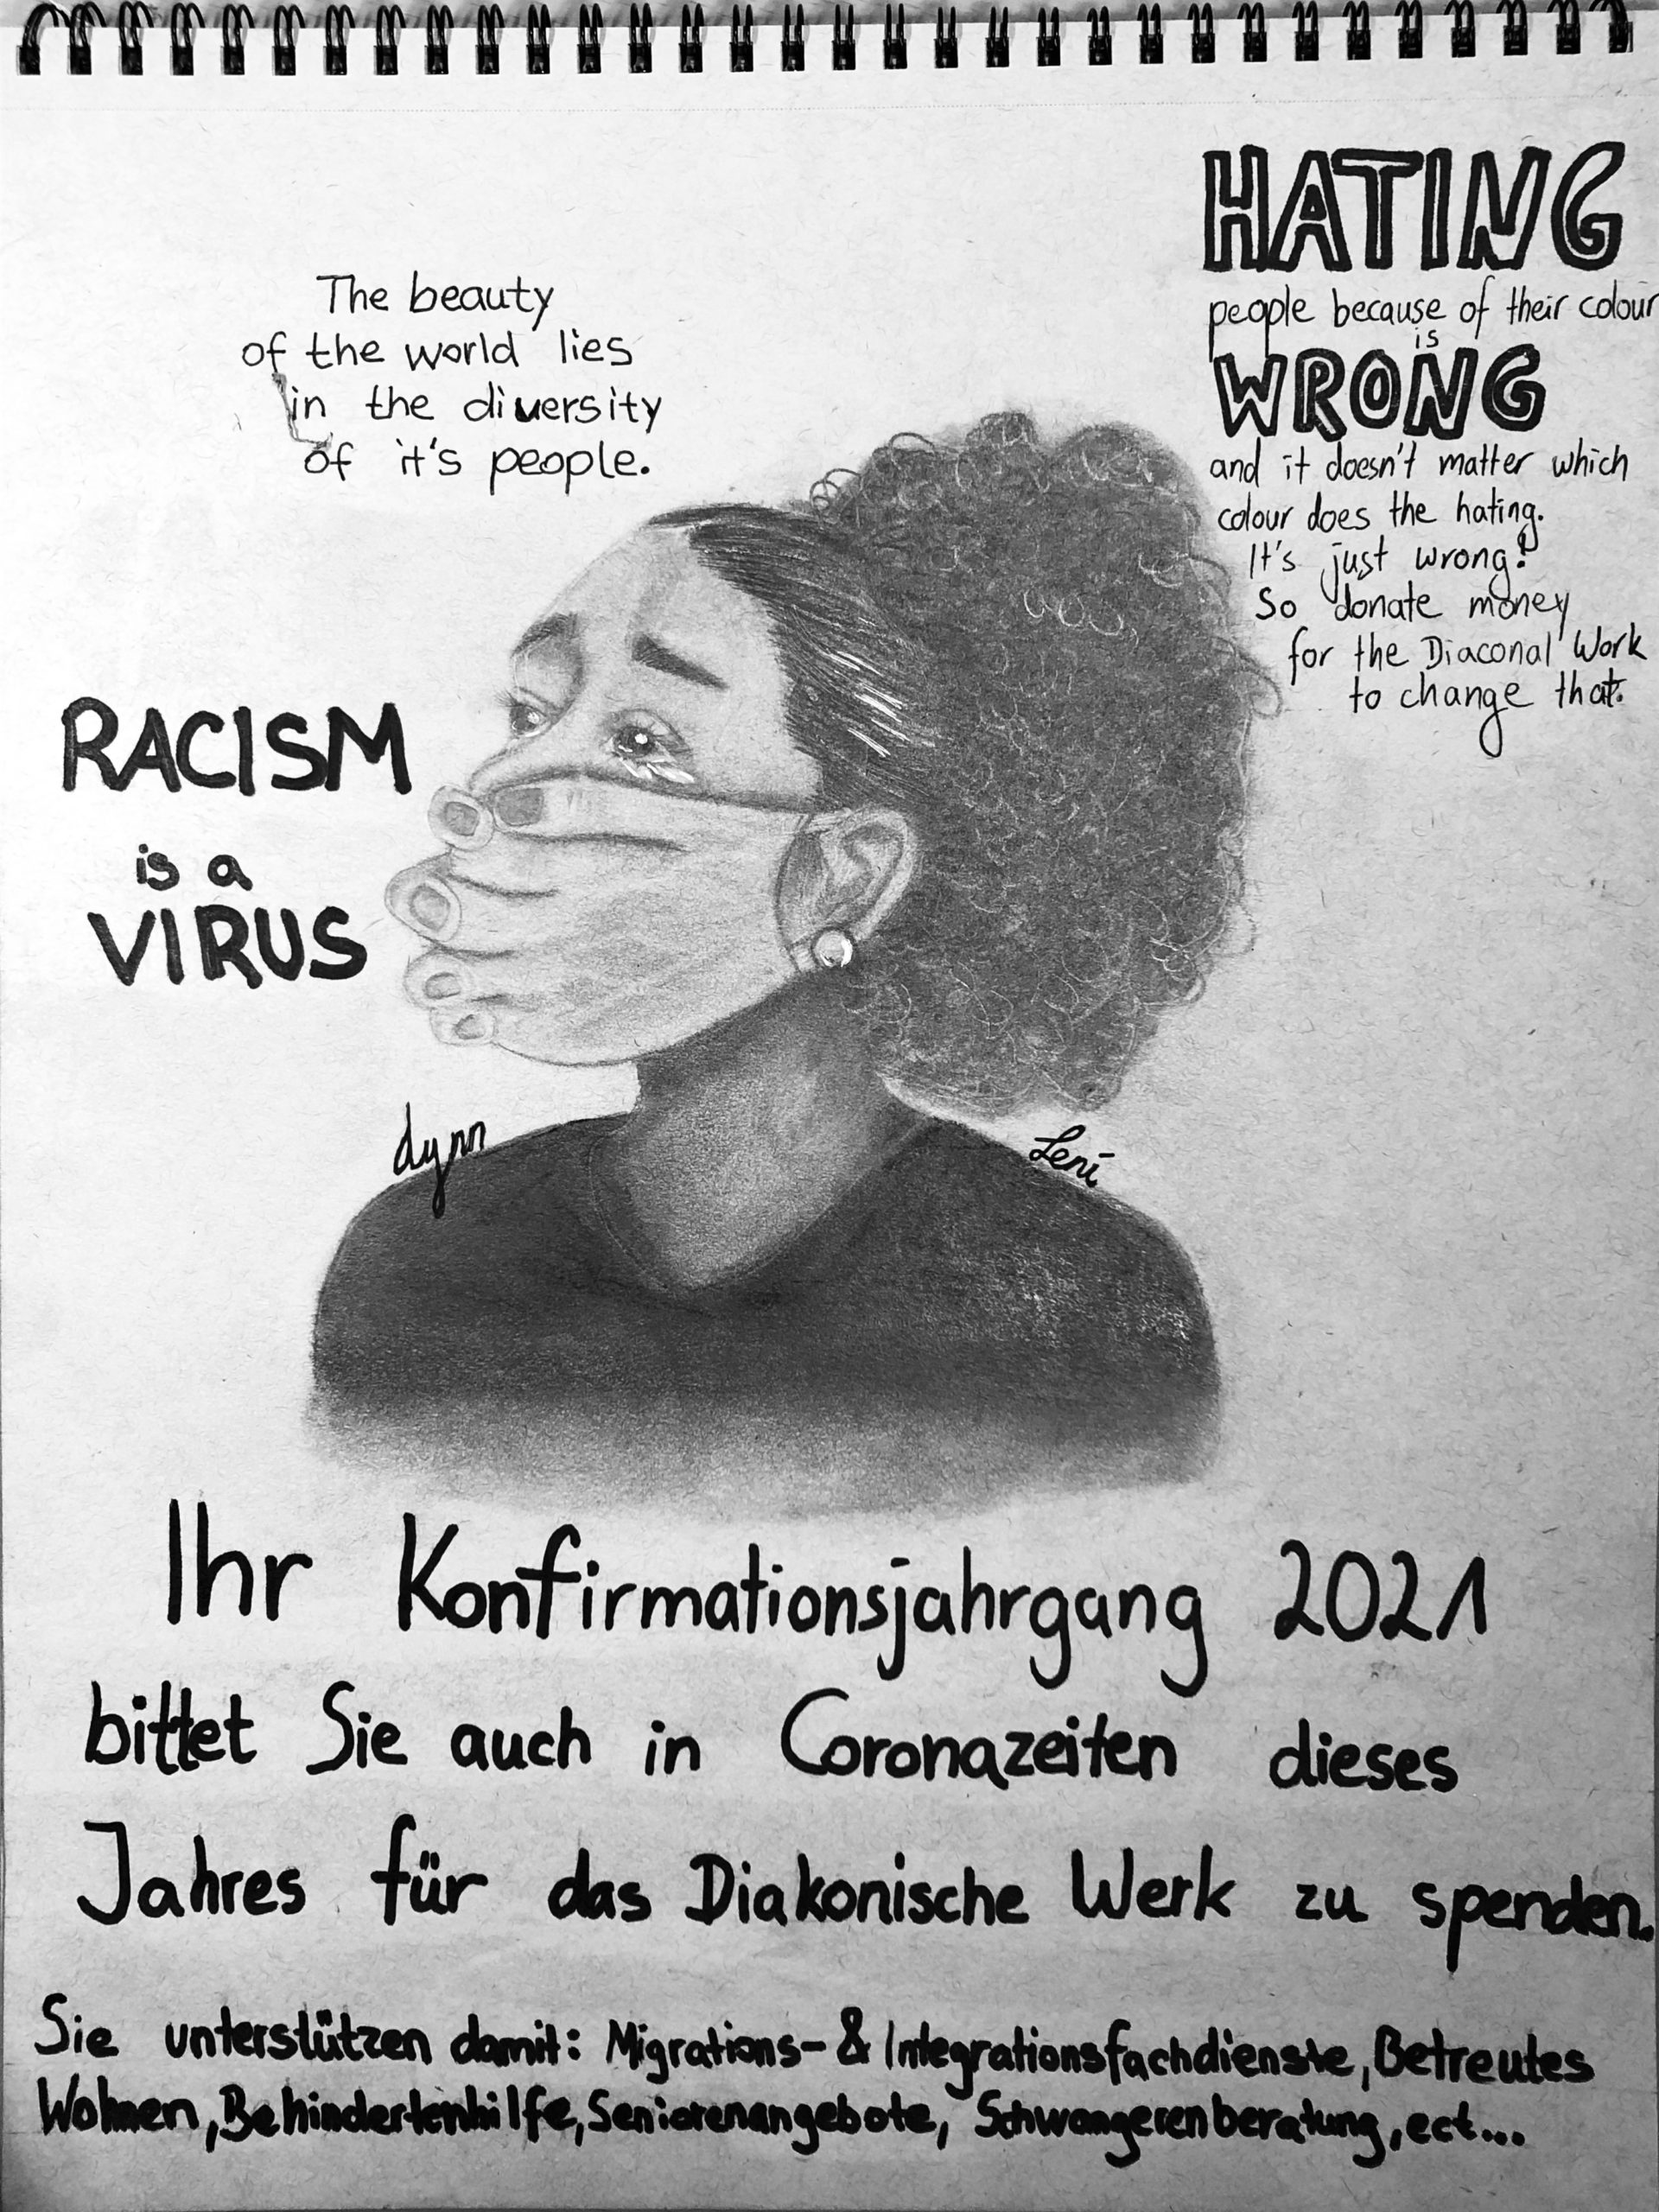 The beauty
of the world lies
in the diversity
of it's people.
HATING
people because of their colour
is
WRONG
and it doesn't matter which
colour does the hating.
It's just wrong!
So donate money
for the Diaconal Work
to change that.
RACISM
is a
VIRUS
dynn
Leni
Ihr Konfirmationsjahrgang 2021
bittet Sie auch in Coronazeiten dieses
Jahres für das Diakonische Werk zu spenden.
Sie unterstützen damit: Migrations- & Integrationsfachdienste, Betreutes
Wohnen, Behindertenhilfe, Seniorenangebote, Schwangerenberatung, ect...